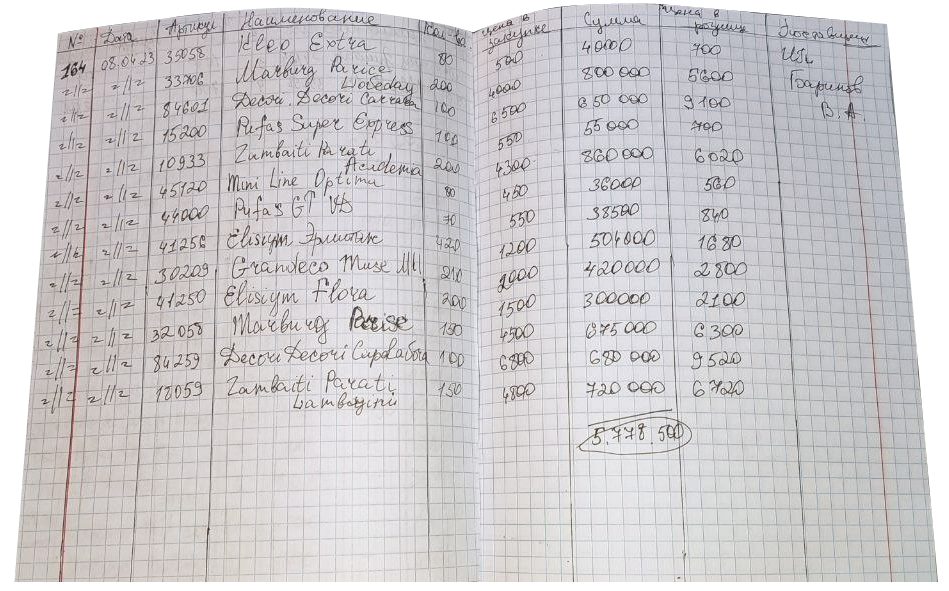 № Дата Артикул Наименование Кол-во Цена в закупке Сумма Цена в розницу Поставщик
164 08.04.23 35058 Kleo Extra 80 500 40000 700 ИП
-//- -//- 33706 Marburg Parice 200 4000 800 000 5600 Баринов
84601 Decori. Decori Carrara 100 6500 650 000 9100 В. А.
-//- -//- 15200 Pufas Super Express 100 550 55000 700
-//- -//- 10933 Zambaiti Parati Academia 200 4300 860000 6020
-//- -//- 45120 Mini Line Optima 80 450 36000 560
-//- -//- 44000 Pufas GT 70 550 38500 840
-//- -//- 41256 Elisiym Эрмитаж 420 1200 504000 1680
-//- -//- 30209 Grandeco Muse 210 2000 420000 2800
-//- -//- 41250 Elisiym Flora 200 1500 300000 2100
-//- -//- 32058 Marburg Parise 150 4500 675000 6300
-//- -//- 84259 Decori Decori 100 6800 680 000 9520
-//- -//- 18059 Zambaiti Parati 150 4800 720 000 6720
5.778.500